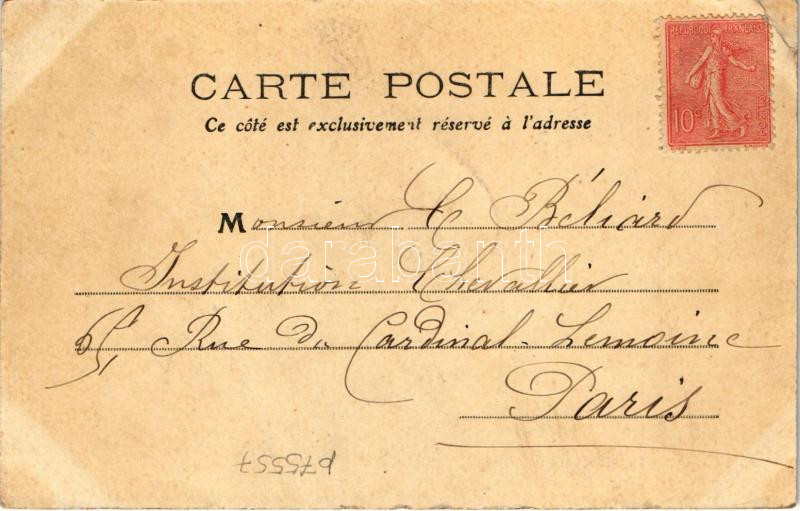 RÉPUBLIQUE FRANÇAISE
10c
POSTES
CARTE POSTALE
Ce côté est exclusivement réservé à l'adresse
Monsieur E Béliard
Institution Chevallier
65, Rue du Cardinal-Lemoine
Paris
darabanth
p75557